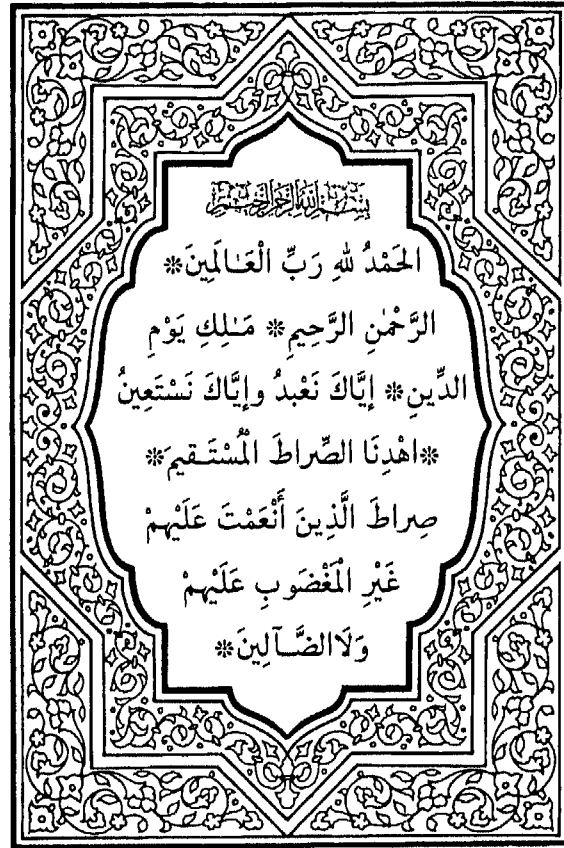 بِسْمِ اللَّهِ الرَّحْمَٰنِ الرَّحِيمِ
الحَمْدُ للهِ رَبِّ الْعَـٰالَمِينَ❊
الرَّحْمٰنِ الرَّحِيمِ❊ مَـٰلِكِ يَوْمِ
الدِّينِ❊ إِيَّاكَ نَعْبدُ وإِيَّاكَ نَسْتَعِينُ
❊اهْدِنَا الصِّراطَ الْمُسْتَـقيمَ❊
صِراطَ الَّذِينَ أَنْعَمْتَ عَلَيْهِمْ
غَيْرِ الْمَغْضَوبِ عَلَيْهِمْ
وَلَا الضَّـآلِينَ❊